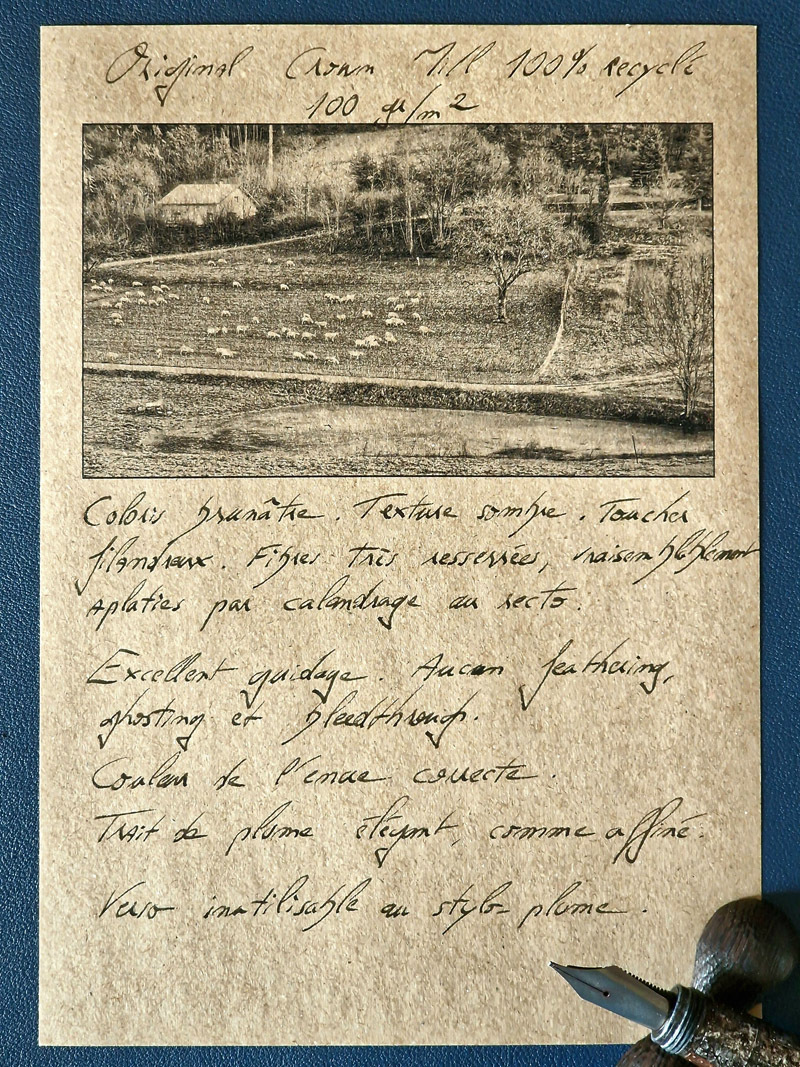 Original Crown Mill 100% recyclé
100 gr/m2
Coloris brunâtre. Texture sombre. Toucher
filandreux. Fibres très resserrées, vraisemblablement
aplaties par calandrage au recto.
Excellent guidage. Aucun feathering,
ghosting et bleedthrough.
Couleur de l'encre correcte.
Trait de plume élégant, comme affiné.
Verso inutilisable au stylo-plume.